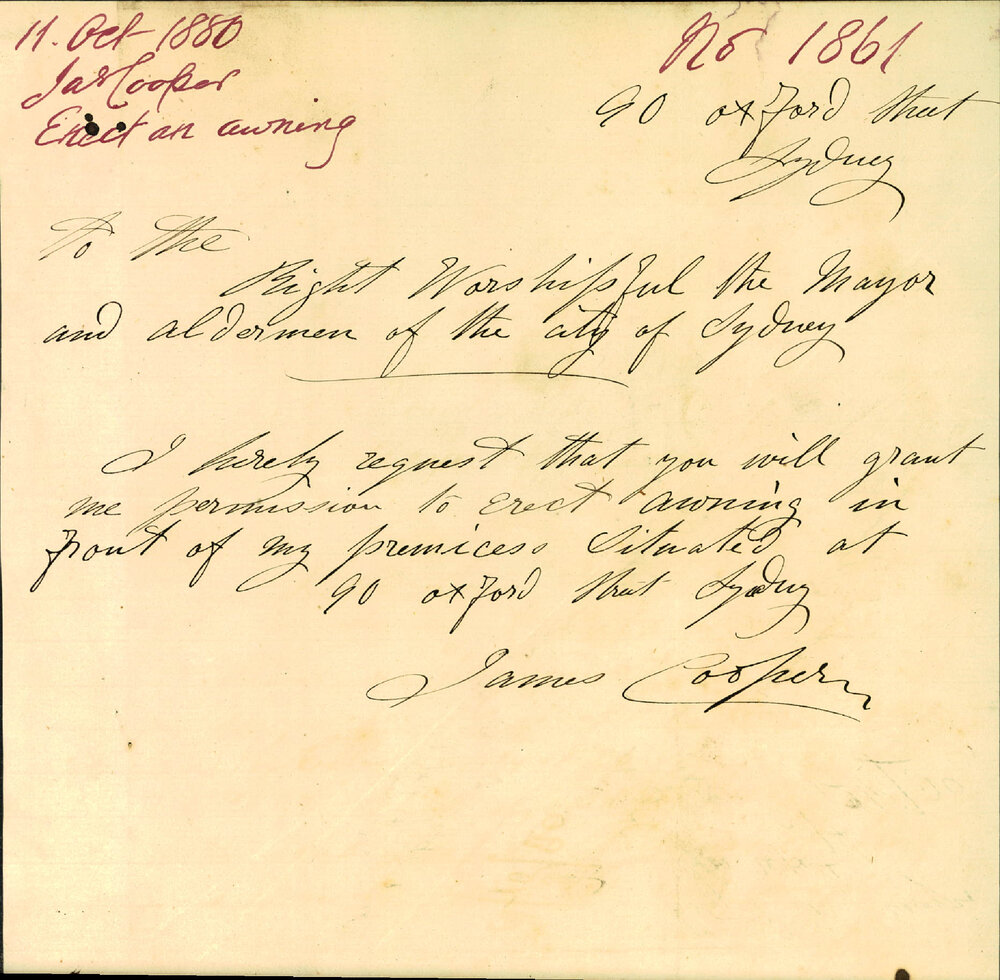 11. Oct 1880
Jas Cooper
Erect an awning
No 1861
90 oxford street
Sydney
To the
Right Worshipful the Mayor
and aldermen of the city of Sydney
I hereby request that you will grant
me permission to Erect awning in
front of my premicess Situated at
90 oxford street Sydney
James Cooper